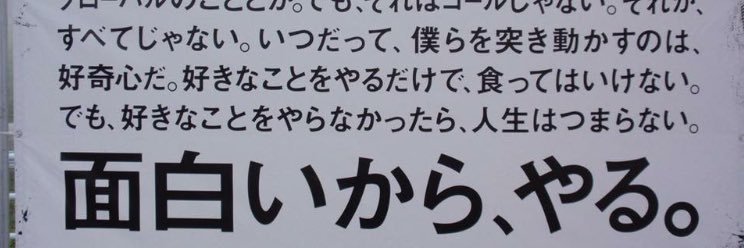 グローバルのことだ。でも、それはゴールじゃない。それが、
すべてじゃない。いつだって、僕らを突き動かすのは、
好奇心だ。好きなことをやるだけで、食ってはいけない。
でも、好きなことをやらなかったら、人生はつまらない。
面白いから、やる。